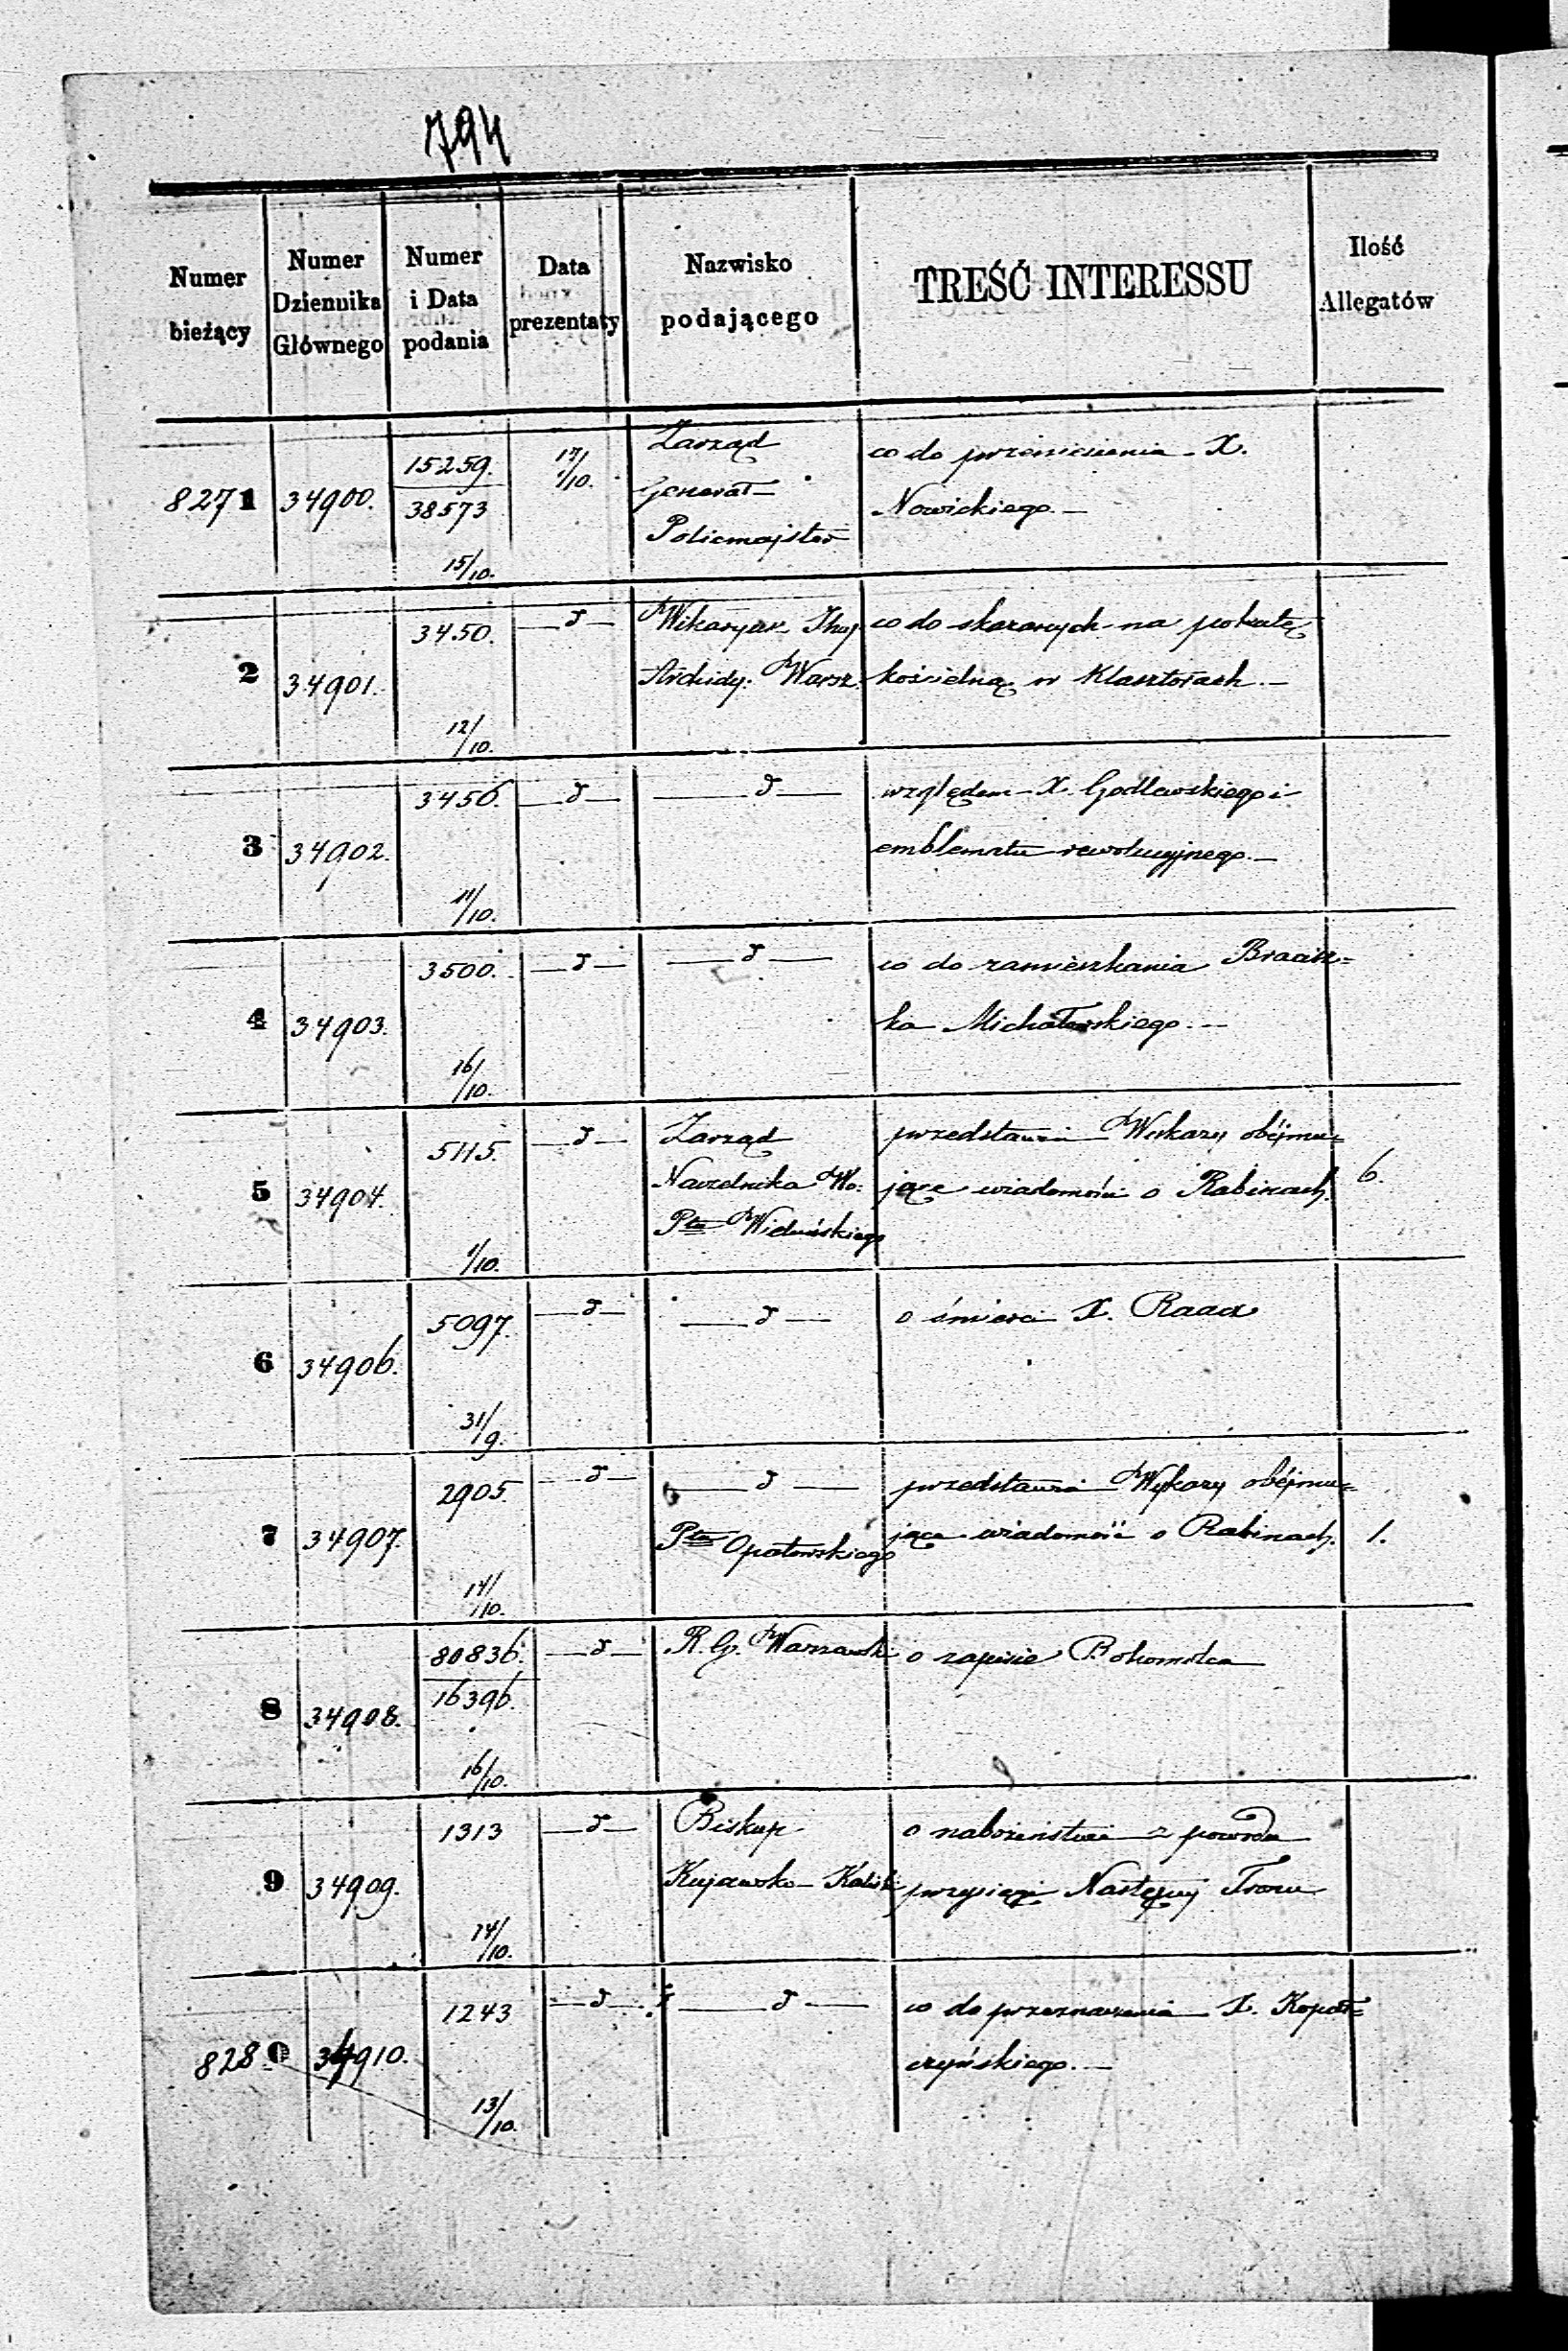 794
Numer bieżący
Numer Dziennika Głównego
Numer i Data podania
Data prezentaty
Nazwisko podającego
TREŚĆ INTERESSU
Ilość Allegatów
8271 34900. 15259. 17/10. Zarząd co do przeniesienia X.
38573 Generał Nowickiego.—
15/10. Policmajster
2 34901. 3450. —d— Wikaryusz co do skazanych na pokutę
12/10. Archidy. Warsz. kościelną w Klasztorach.—
3 34902. 3456. —d— —d— względem X. Godlewskiego i
11/10. emblematu rewolucyjnego.—
4 34903. 3500. —d— —d— co do zamieszkania Bracisz=
16/10. ka Michałowskiego.—
5 34904. 5115. —d— Zarząd przedstawia Wykazy obéjmu=
Naczelnika Wo: jące wiadomości o Rabinach. 6.
1/10. Ptu Wieluńskiego
6 34906. 5097. —d— —d— o śmierci X. Raacz
31/9.
7 34907. 2905. —d— —d— przedstawia Wykazy obéjmu=
Ptu Opatowskiego jące wiadomości o Rabinach. 1.
14/10.
8 34908. 80836. —d— R. G. Warszawski o zapisie Bohomolca
16396.
16/10.
9 34909. 1313 —d— Biskup o nabożeństwie z powodu
Kujawsko-Kalisk przysięgi Następcy Tronu
14/10.
8280 34910. 1243 —d— —d— co do przeznaczenia X. Kopeć=
13/10. czyńskiego.—